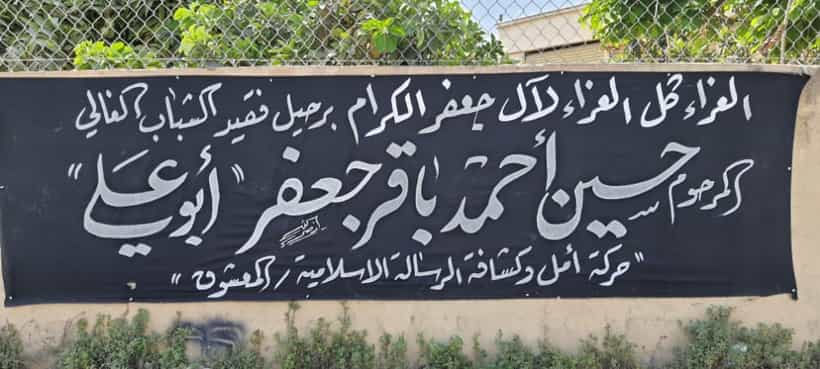 العزاء كل العزاء لآل جعفر الكرام برحيل فقيد الشباب الغالي
المرحوم حسين أحمد باقر جعفر "أبو علي"
"حركة أمل وكشافة الرسالة الاسلامية / المعشوق"